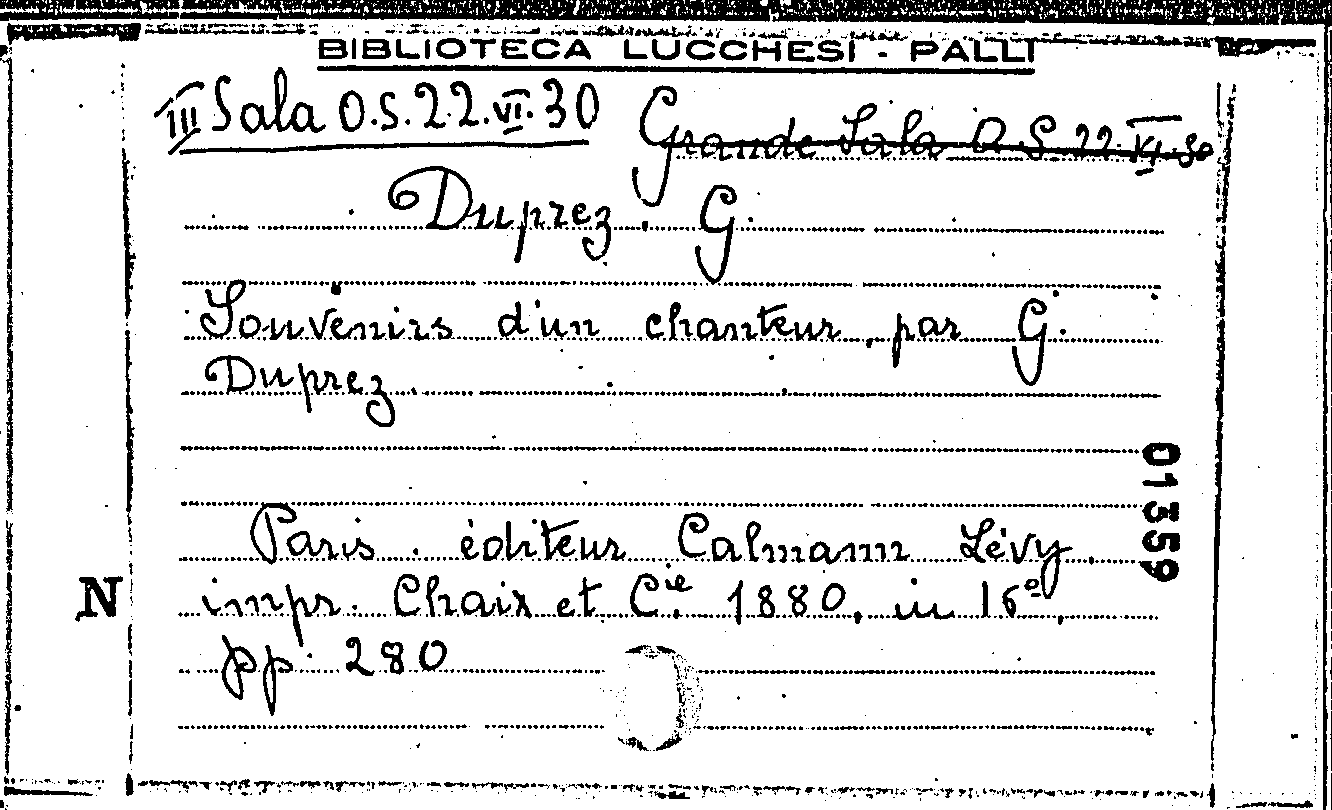 BIBLIOTECA LUCCHESI - PALLI
III Sala O.S.22.VI.30 Grande Sala O.S 22.VI.30
Duprez. G.
Souvenirs d'un chanteur, par G.
Duprez.
01359
Paris. éditeur Calmann Lévy.
N
impr. Chaix et C.ie 1880, in 16º,
pp. 280